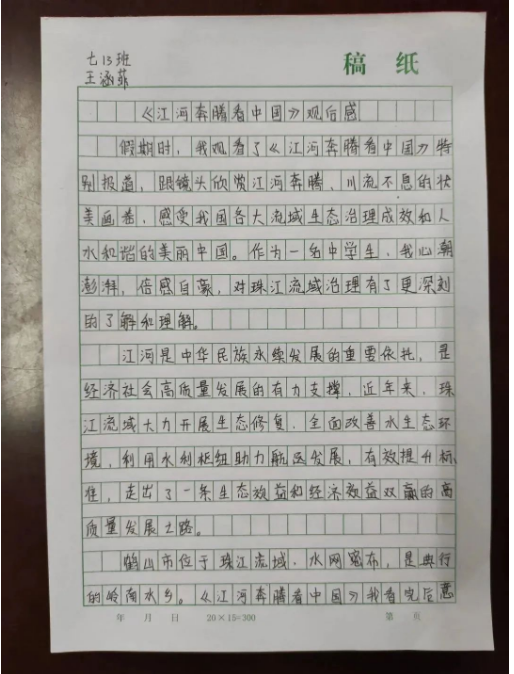 七13班
王涵菲
稿纸
《江河奔腾看中国》观后感
假期时，我观看了《江河奔腾看中国》特
别报道，跟镜头欣赏江河奔腾、川流不息的壮
美画卷，感受我国各大流域生态治理成效和人
水和谐的美丽中国。作为一名中学生，我心潮
澎湃，倍感自豪，对珠江流域治理有了更深刻
的了解和理解。
江河是中华民族永续发展的重要依托，是
经济社会高质量发展的有力支撑，近年来，珠
江流域大力开展生态修复、全面改善水生态环
境，利用水利枢纽助力航运发展，有效提升标
准，走出了一条生态效益和经济效益双赢的高
质量发展之路。
鹤山市位于珠江流域，水网密布，是典行
的岭南水乡。《江河奔腾看中国》我看完后思
年 月 日 20×15=300 第 页